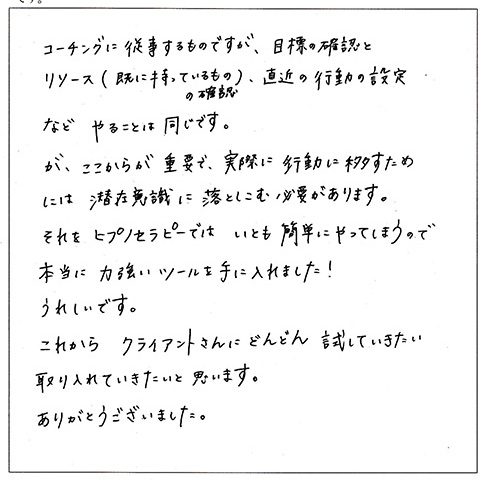 です。
コーチングに従事するものですが、目標の確認と
リソース(既に持っているもの)、直近の行動の設定
の確認
など やることは同じです。
が、ここからが重要で、実際に行動に移すため
には 潜在意識に落としこむ必要があります。
それをヒプノセラピーでは いとも簡単にやってしまうので
本当に力強いツールを手に入れました!
うれしいです。
これから クライアントさんにどんどん 試していきたい
取り入れていきたいと思います。
ありがとうございました。